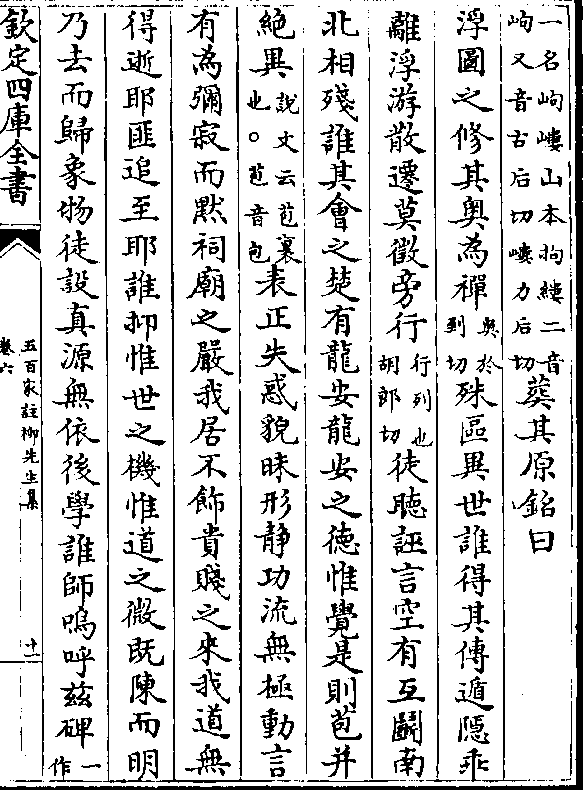 一名岣嶁山本拘縷二音
岣又音古后切嶁力后切
葬其原銘曰
浮圖之修其奥為禪
奥於
到切
殊區異世誰得其傳遁隠乖
離浮游散遷莫徵旁行
行列也
胡郎切
徒聽誣言空有互鬬南
北相殘誰其會之楚有龍安龍安之德惟覺是則苞并
絶異
說文云苞裹
也○苞音包
表正失惑貌昧形静功流無極動言
有為彌寂而黙祠廟之嚴我居不飾貴賤之來我道無
得逝耶匪追至耶誰抑惟世之機惟道之微既陳而明
乃去而歸象物徒設真源無依後學誰師嗚呼兹碑
一
作
欽定四庫全書
五百家註柳先生集
卷六
十一